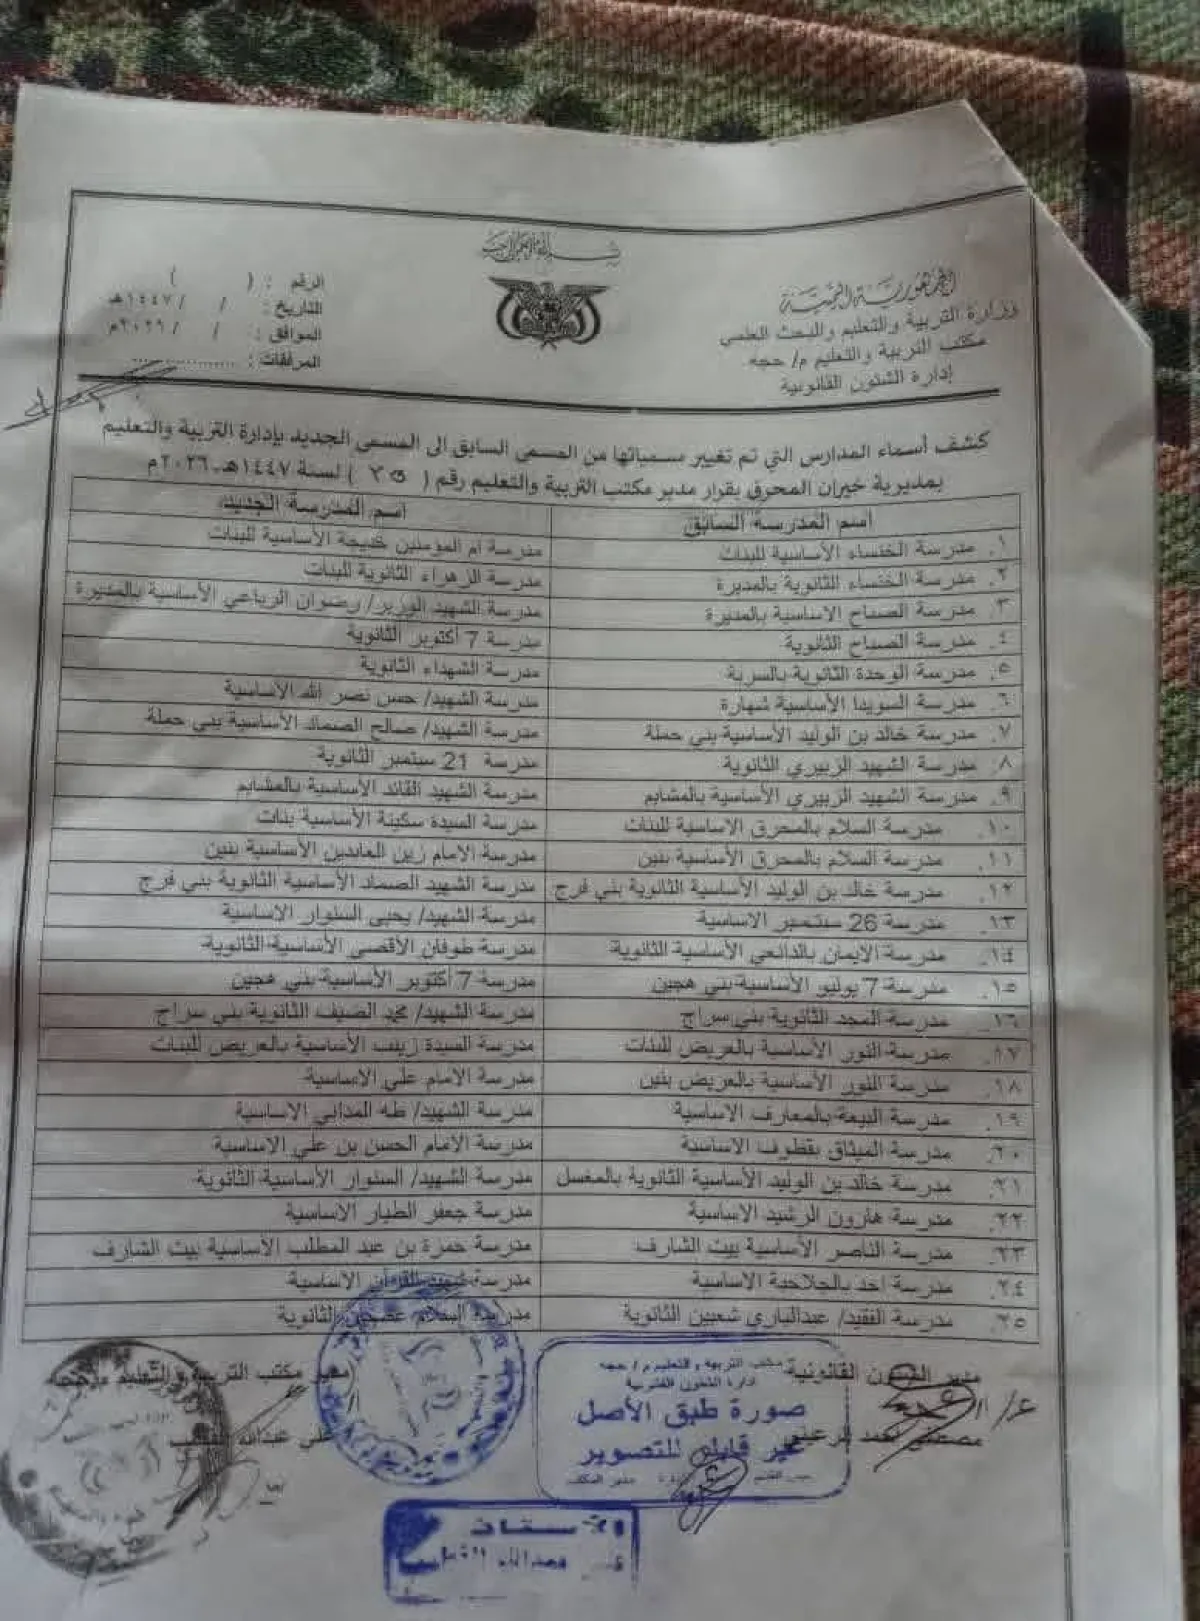 بسم الله الرحمن الرحيم
الجمهورية اليمنية
وزارة التربية والتعليم والبحث العلمي
مكتب التربية والتعليم م/ حجه
إدارة الشئون القانونية
الرقم : ( )
التاريخ : / / ١٤٤٧هـ
الموافق : / / ٢٠٢٦م
المرفقات : ..................
كشف أسماء المدارس التي تم تغيير مسمياتها من المسمى السابق الى المسمى الجديد بإدارة التربية والتعليم
بمديرية خيران المحرق بقرار مدير مكتب التربية والتعليم رقم ( ) لسنة ١٤٤٧هـ ـ ٢٠٢٦م
اسم المدرسة السابق اسم المدرسة الجديد
١. مدرسة الخنساء الأساسية للبنات مدرسة ام المؤمنين خديجة الأساسية للبنات
٢. مدرسة الخنساء الثانوية بالمديرة مدرسة الزهراء الثانوية للبنات
٣. مدرسة الصباح الاساسية بالمديرة مدرسة الشهيد الوزير/ رضوان الرباعي الأساسية بالمديرة
٤. مدرسة الصباح الثانوية مدرسة 7 أكتوبر الثانوية
٥. مدرسة الوحدة الثانوية بالسرية مدرسة الشهداء الثانوية
٦. مدرسة السويدا الأساسية شهارة مدرسة الشهيد/ حسن نصر الله الأساسية
٧. مدرسة خالد بن الوليد الأساسية بني حملة مدرسة الشهيد/ صالح الصماد الأساسية بني حملة
٨. مدرسة الشهيد الزبيري الثانوية مدرسة 21 سبتمبر الثانوية
٩. مدرسة الشهيد الزبيري الأساسية بالمشايم مدرسة الشهيد القائد الأساسية بالمشايم
١٠. مدرسة السلام بالمحرق الاساسية للبنات مدرسة السيدة سكينة الأساسية بنات
١١. مدرسة السلام بالمحرق الأساسية بنين مدرسة الامام زين العابدين الأساسية بنين
١٢. مدرسة خالد بن الوليد الأساسية الثانوية بني فرج مدرسة الشهيد الصماد الأساسية الثانوية بني فرج
١٣. مدرسة 26 سبتمبر الاساسية مدرسة الشهيد/ يحيى السنوار الاساسية
١٤. مدرسة الايمان بالدانعي الأساسية الثانوية مدرسة طوفان الأقصى الأساسية الثانوية
١٥. مدرسة 7 يوليو الأساسية بني هجين مدرسة 7 أكتوبر الأساسية بني هجين
١٦. مدرسة المجد الثانوية بني سراج مدرسة الشهيد/ محمد الضيف الثانوية بني سراج
١٧. مدرسة النور الأساسية بالعريض للبنات مدرسة السيدة زينب الأساسية بالعريض للبنات
١٨. مدرسة النور الأساسية بالعريض بنين مدرسة الامام علي الاساسية
١٩. مدرسة البيمة بالمعارف الاساسية مدرسة الشهيد/ طه المداني الاساسية
٢٠. مدرسة الميثاق بقظوف الاساسية مدرسة الامام الحسن بن علي الاساسية
٢١. مدرسة خالد بن الوليد الأساسية الثانوية بالمغسل مدرسة الشهيد/ السنوار الأساسية الثانوية
٢٢. مدرسة هارون الرشيد الاساسية مدرسة جعفر الطيار الاساسية
٢٣. مدرسة الناصر الأساسية بيت الشارف مدرسة حمزة بن عبد المطلب الأساسية بيت الشارف
٢٤. مدرسة احد بالجلاحية الاساسية مدرسة شهيد القرآن الاساسية
٢٥. مدرسة الفقيد/ عبدالباري شعبين الثانوية مدرسة السلام الثانوية
مدير الشئون القانونية
مدير مكتب التربية والتعليم م/ حجه
مكتب التربية والتعليم م/ حجه
إدارة الشئون القانونية
صورة طبق الأصل
غير قابلة للتصوير
مدير المكتب